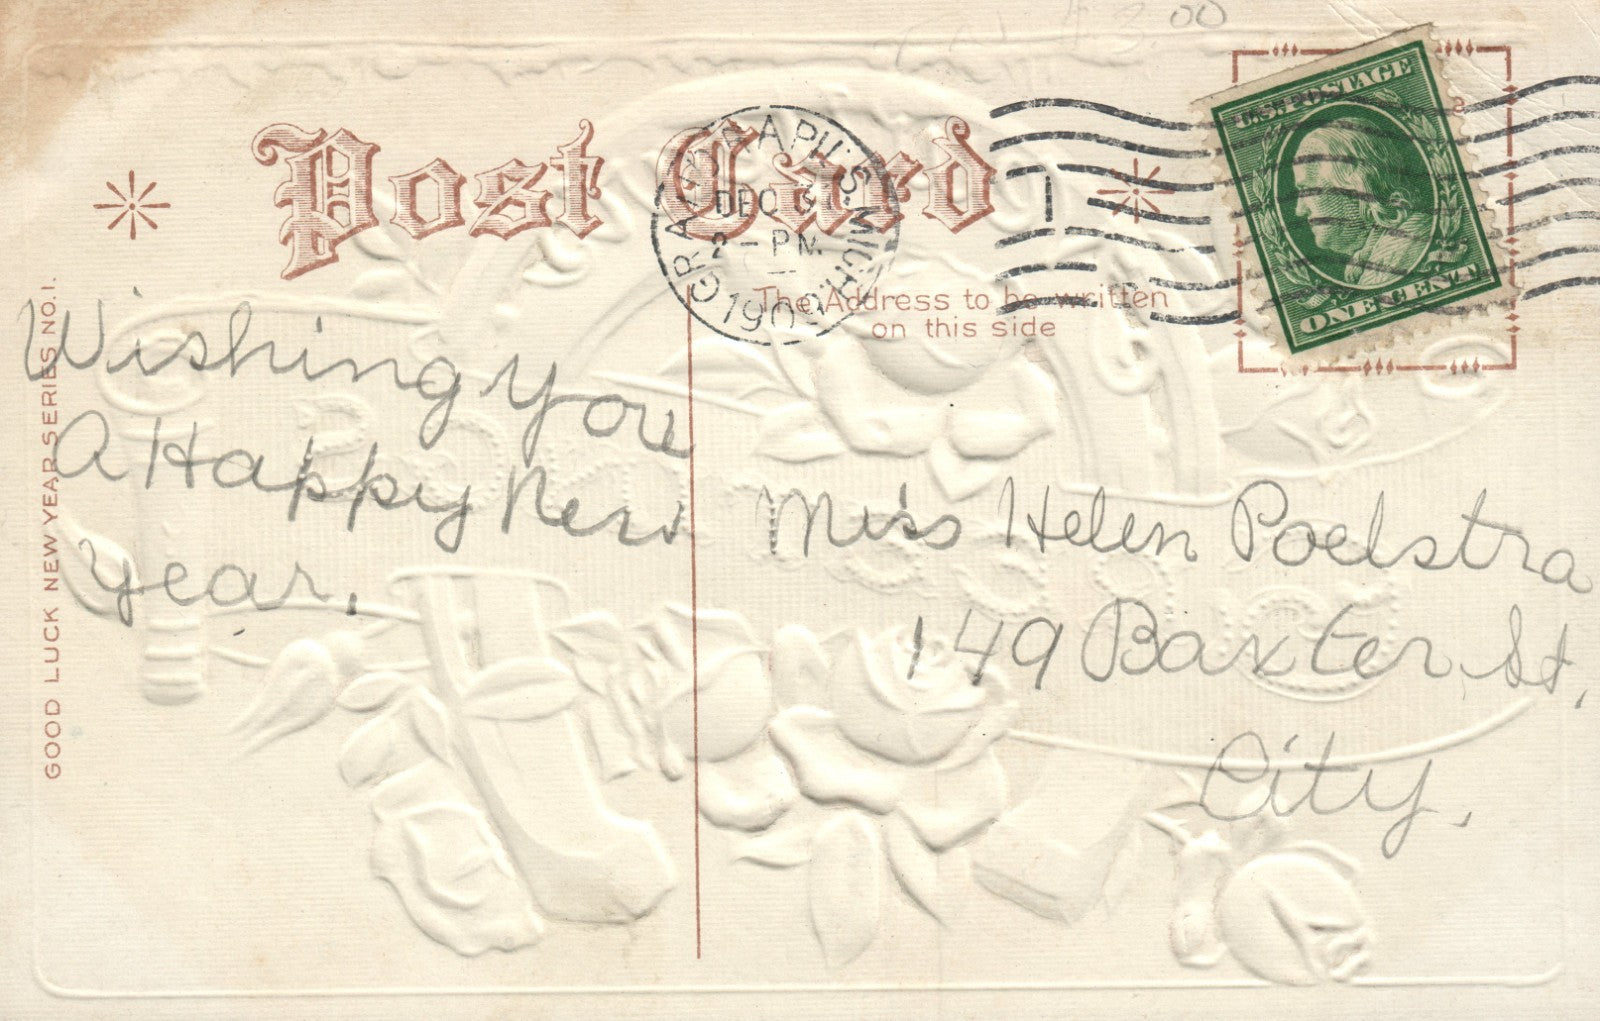 $3.00
Post Card
GRAND RAPIDS. MICH.
DEC 31
2 - PM
1909
U.S. POSTAGE
ONE CENT
2
The Address to be written
on this side
GOOD LUCK NEW YEAR SERIES NO. 1.
Wishing you
A Happy New
Year.
Miss Helen Poelstra
149 Baxter St.
City.